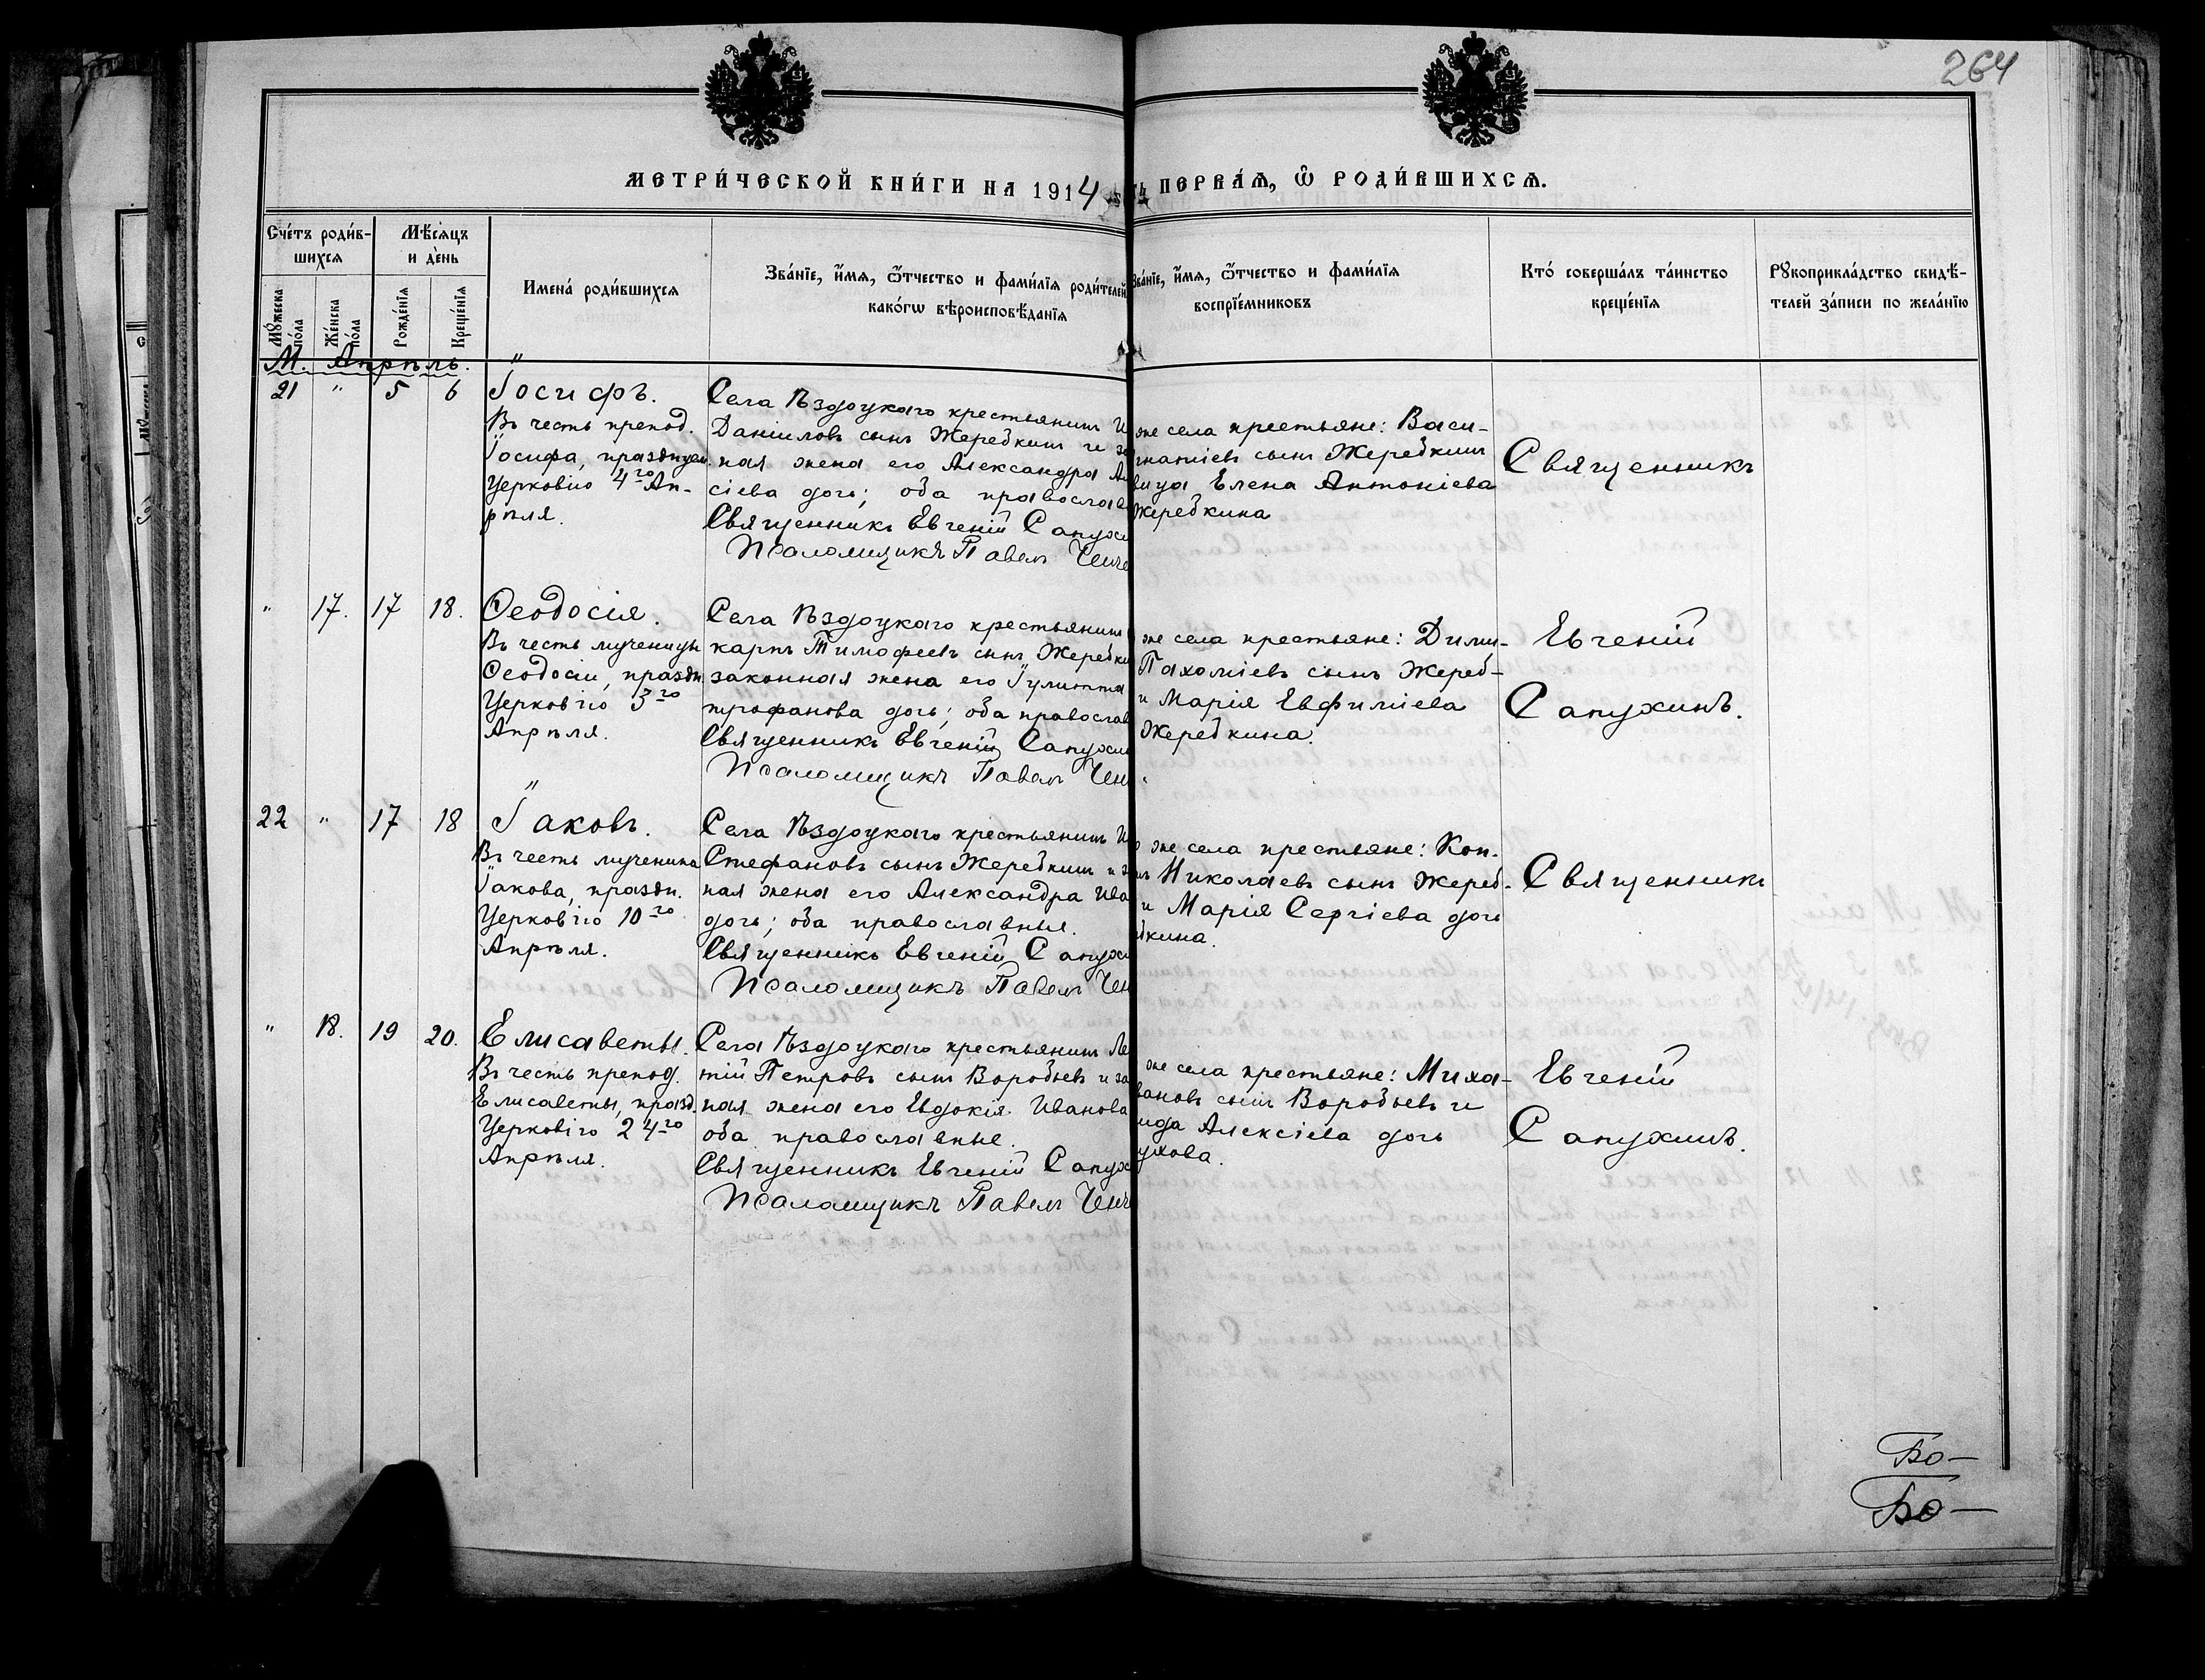 264
МЕТРИ́ЧЕСКОЙ КНИ́ГИ НА 1914
ПЕРВАѦ, Ѿ РОДИ́ВШИХСѦ.
Сче́тъ роди́в-
шихсѧ
Мѣ́сѧцъ
и де́нь
Имена́ роди́вшихсѧ
Зва́нїе, и҆́мѧ, ѻ҆́тчество и фами́лїѧ роди́телей
како́гѡ вѣроисповѣ́данїѧ
Зва́нїе, и҆́мѧ, ѻ҆́тчество и фами́лїѧ
воспрїе́мниковъ
Кто́ соверша́лъ та́инство
креще́нїѧ
Рꙋкоприкла́дство свидѣ́-
телей за́писи по жела́нїю
Мꙋ́жеска
по́ла
Же́нска
по́ла
Рожде́нїѧ
Креще́нїѧ
М. Апрѣль.
21 " 5 6
Іосифъ.
Въ честь препод.
Іосифа, празднуем.
Церковію 4го Ап-
рѣля.
Села Ѣздоцкаго крестьянинъ И
Даніиловъ сынъ Жеребкинъ и за
ная жена его Александра Ал
сіева дочь; оба православ
Священникъ Евгеній Сапухи
Псаломщикъ Павелъ Ченч
же села крестьяне: Васи-
гнатіевъ сынъ Жеребкинъ
вица Елена Антоніева
Жеребкина
Священникъ
" 17. 17 18.
Ѳеодосія.
Въ честь мученицы
Ѳеодосіи, праздн.
Церковію 3го
Апрѣля.
Села Ѣздоцкаго крестьянинъ
карпъ Тимофеевъ сынъ Жеребки
законная жена его Іулитта
трофанова дочь; оба православ
Священникъ Евгеній Сапухи
Псаломщикъ Павелъ Чен
же села крестьяне: Дими-
Пахоміевъ сынъ Жереб-
и Марія Евфиміева
Жеребкина.
Евгеній
Сапухинъ.
22 " 17 18
Іаковъ.
Въ честь мученика
Іакова, праздн.
Церковію 10го
Апрѣля.
Села Ѣздоцкаго крестьянинъ И
Стефановъ сынъ Жеребкинъ и за
ная жена его Александра Ива
дочь; оба православныя.
Священникъ Евгеній Сапухи
Псаломщикъ Павелъ Чен
же села крестьяне: Кон-
Николаевъ сынъ Жереб-
и Марія Сергіева дочь
бкина.
Священникъ
" 18. 19 20.
Елисаветы.
Въ честь препод.
Елисаветы, празд.
Церковію 24го
Апрѣля.
Села Ѣздоцкаго крестьянинъ Ле
тій Петровъ сынъ Воробьевъ и за
ная жена его Евдокія Иванова
оба православные.
Священникъ Евгеній Сапух
Псаломщикъ Павелъ Ченч
же села крестьяне: Миха-
вановъ сынъ Воробьевъ и
ида Алексіева дочь
ухова.
Евгеній
Сапухинъ.
Бо-
Бо-